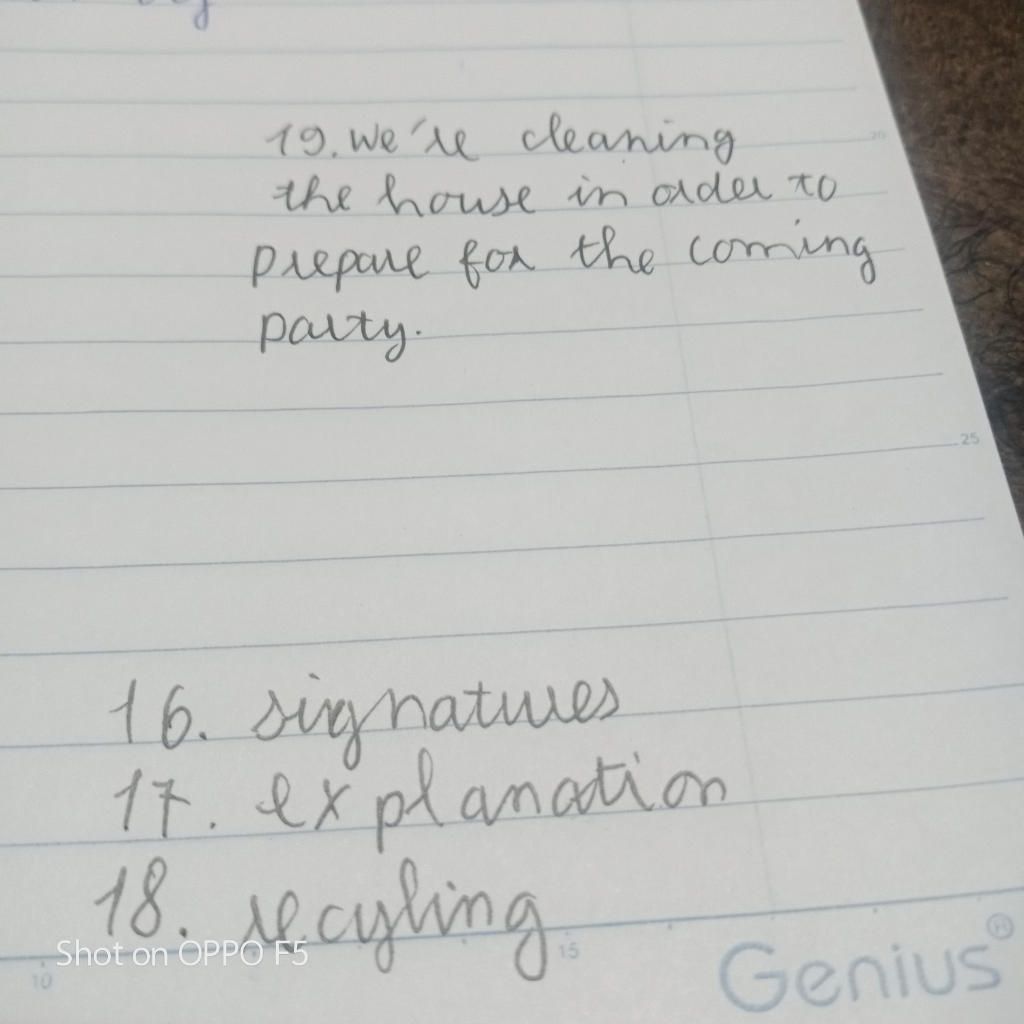 19. We're cleaning
the house in order to
prepare for the coming
party.
20
25
16. signatures
17. explanation
18. recyling
Shot on OPPO F5
10
15
Genius
H